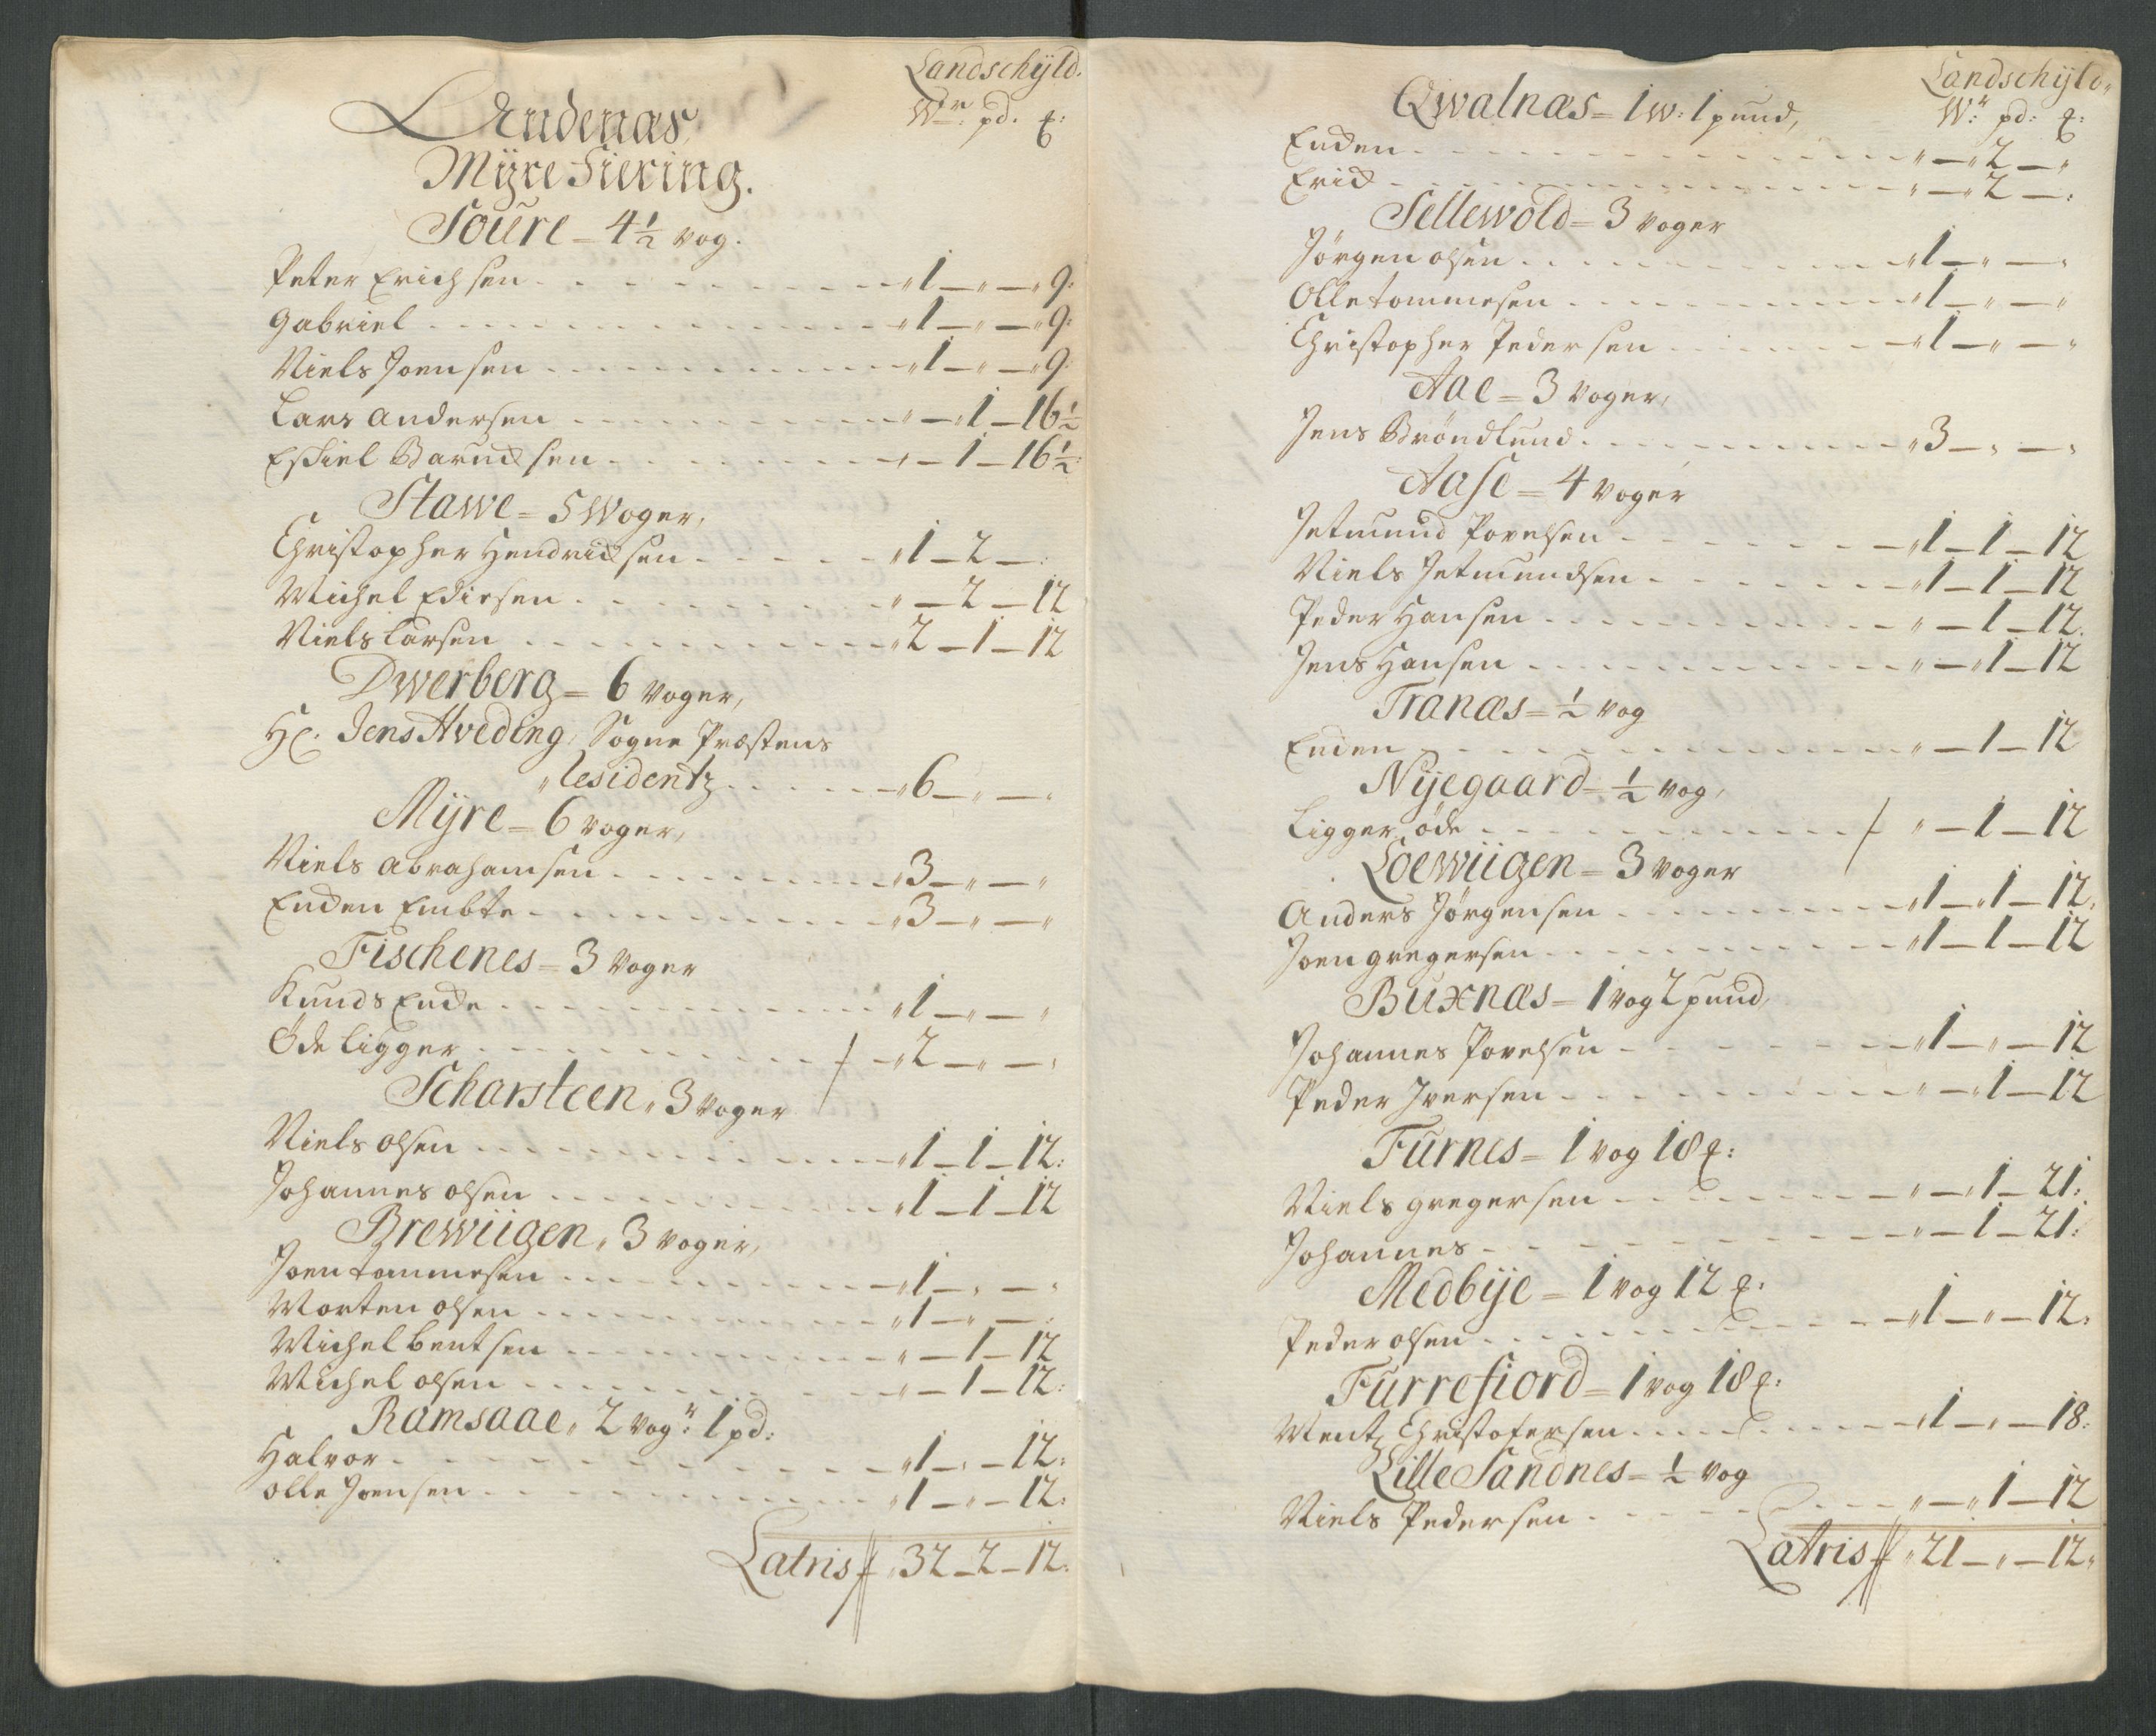 Landschÿld.
Wr: pd. ℔:
Andenæs
Mÿre Fiering.
Soure - 4½ vog.
Peter Erichsen - „1 - „ - „9:
Gabriel - „1 - „ - „9:
Niels Joensen - „1 - „ - „9
Lars Andersen - „ - „1 - 16½
Eskiel Baruchsen - „ - 1 - 16½:
Stawe = 5 Woger,
Christopher Hendrichsen - „1 - 2 - :
Michel Edissen - „ - 2 - 12
Niels Larsen - „2 - 1 - 12
Dwerberg = 6 voger,
Hr. Jens Hveding, Sogne Præstens
Residentz - „6 - „ - „
Mÿre = 6 voger,
Niels Abrahamsen - „3 - „ - „
Enden Embte - „3 - „ - „
Fischenes = 3 voger
Knuds Encke - „1 - „ - „
Öde ligger - ƒ - „2 - „ - „
Scharsteen, 3 voger
Niels olsen - „1 - 1 - 12:
Johannes olsen - „1 - 1 - 12
Brewiigen, 3 voger,
Joen tommesen - „1 - „ - „
Morten olsen - „1 - „ - :
Michel bentsen - „ - 1 - 12
Michel olsen - „ - 1 - 12:
Ramsaae, 2 vogr: 1 pd:
Halvor - „1 - „ - 12:
Olle Joensen - „1 - „ - 12:
Latris ƒ „32 - 2 - 12:
Landschÿld„
Wr: pd: ℔:
Qwalnæs = 1 w: 1 pund,
Enden - „ - „2 - „
Erich - „ - „2 - :
Sellewold = 3 voger
Jörgen olsen - „1 - „ - „
Olle tommesen - „1 - „ - „
Christopher Pedersen - „1 - „ - „
Aae = 3 voger,
Jens Bröndlund - „3 - „ - „
Aase = 4 voger
Jetmund Povelsen - „1 - 1 - 12
Niels Jetmundsen - „1 - 1 - 12
Peder Hansen - „ - 1 - 12.
Jens Hansen - „ - „1 - 12
Tranæs = ½ vog
Enden - „ - 1 - 12
Nÿegaard = ½ vog,
Ligger öde - ƒ „ - 1 - 12
Loewiigen = 3 voger
Anders Jörgensen - „1 - „1 - 12:
Joen gregersen - „1 - 1 - 12
Buxnæs = 1 vog 2 pund,
Johannes Povelsen - „1 - „ - 12
Peder Iversen - „ - „1 - 12
Furnes = 1 vog 18 ℔:
Niels gregersen - „ - „1 - 21:
Johannes - „ - 1 - 21:
Medbÿe = 1 vog 12 ℔:
Peder olsen - „1 - „ - 12:
Furrefiord = 1 vog 18 ℔:
Mentz Christofersen - „1 - „ - 18:
Lille Sandnes = ½ vog
Niels Pedersen - „ - „1 - 12
Latris ƒ „21 - „ - 12„